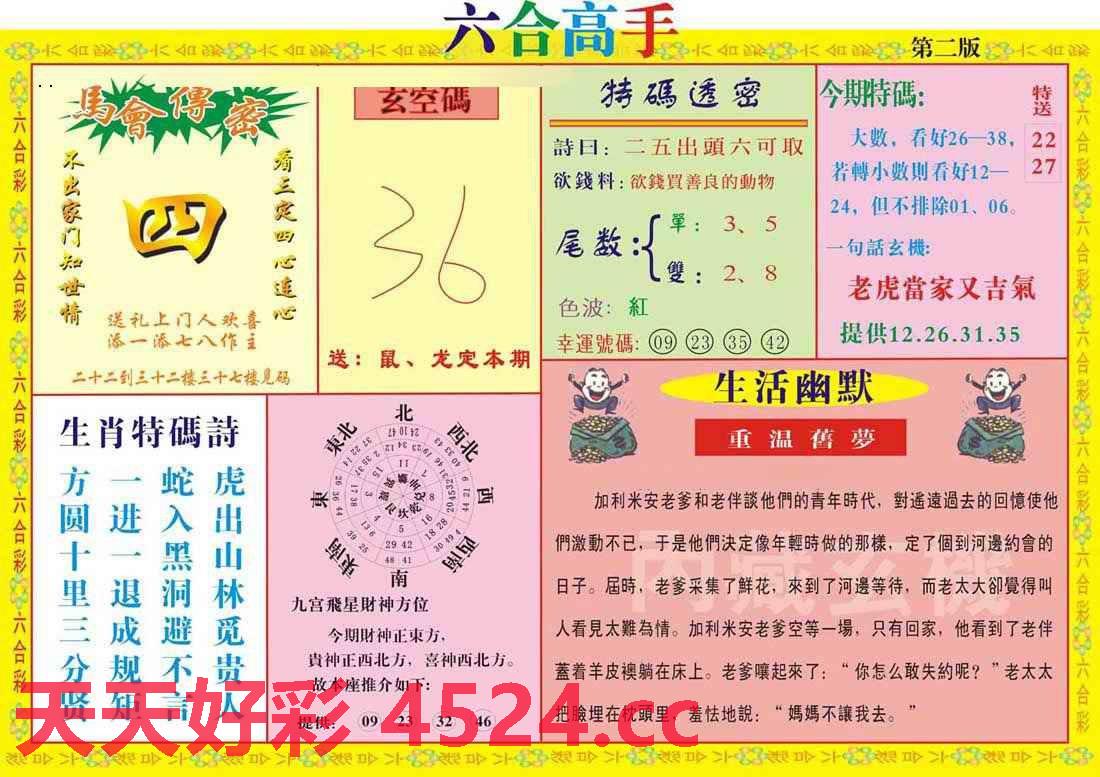 六合高手
第二版
馬會傳密
不出家门知世情
四
看三定四心连心
送礼上门人欢喜
添一添七八作主
二十二到三十二楼三十七楼见码
玄空碼
36
送：鼠、龙定本期
特碼透密
詩曰：二五出頭六可取
欲錢料：欲錢買善良的動物
尾数：
單：3、5
雙：2、8
色波：紅
幸運號碼：09 23 35 42
今期特碼：
特送
22
27
大數，看好26—38，
若轉小數則看好12—
24，但不排除01、06。
一句話玄機：
老虎當家又吉氣
提供12.26.31.35
生肖特碼詩
虎出山林觅贵人
蛇入黑洞避不言
一进一退成规矩
方圆十里三分贤
北
東北
西北
東
西
東南
西南
南
九宫飛星財神方位
今期財神正東方，
貴神正西北方，喜神西北方。
故本座推介如下：
提供：09 23 32 46
生活幽默
重温舊夢
加利米安老爹和老伴談他們的青年時代，對遙遠過去的回憶使他
們激動不已，于是他們決定像年輕時做的那樣，定了個到河邊約會的
日子。屆時，老爹采集了鮮花，來到了河邊等待，而老太大卻覺得叫
人看見太難為情。加利米安老爹空等一場，只有回家，他看到了老伴
蓋着羊皮襖躺在床上。老爹嚷起來了：“你怎么敢失約呢？”老太太
把臉埋在枕頭里，羞怯地說：“媽媽不讓我去。”
内藏玄機
天天好彩 4524.cc